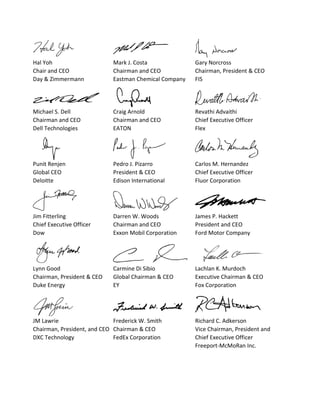 Hal Yoh Mark J. Costa Gary Norcross
Chair and CEO Chairman and CEO Chairman, President & CEO
Day & Zimmermann Eastman Chemical Company FIS
Michael S. Dell Craig Arnold Revathi Advaithi
Chairman and CEO Chairman and CEO Chief Executive Officer
Dell Technologies EATON Flex
Punit Renjen Pedro J. Pizarro Carlos M. Hernandez
Global CEO President & CEO Chief Executive Officer
Deloitte Edison International Fluor Corporation
Jim Fitterling Darren W. Woods James P. Hackett
Chief Executive Officer Chairman and CEO President and CEO
Dow Exxon Mobil Corporation Ford Motor Company
Lynn Good Carmine Di Sibio Lachlan K. Murdoch
Chairman, President & CEO Global Chairman & CEO Executive Chairman & CEO
Duke Energy EY Fox Corporation
JM Lawrie Frederick W. Smith Richard C. Adkerson
Chairman, President, and CEO Chairman & CEO Vice Chairman, President and
DXC Technology FedEx Corporation Chief Executive Officer
Freeport-McMoRan Inc.